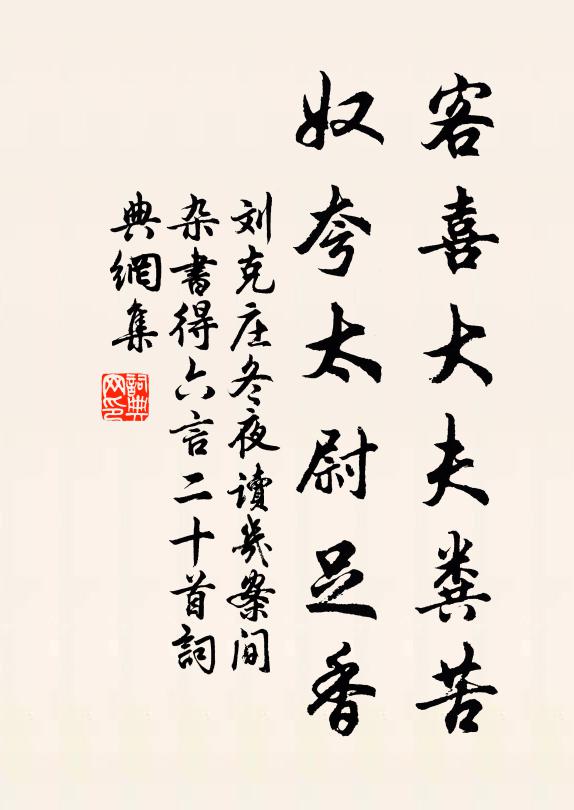 客喜大夫粪苦
奴夸太尉足香
刘克庄冬夜讀幾案间
杂書得六言二十首詞
典網集
詞典网印